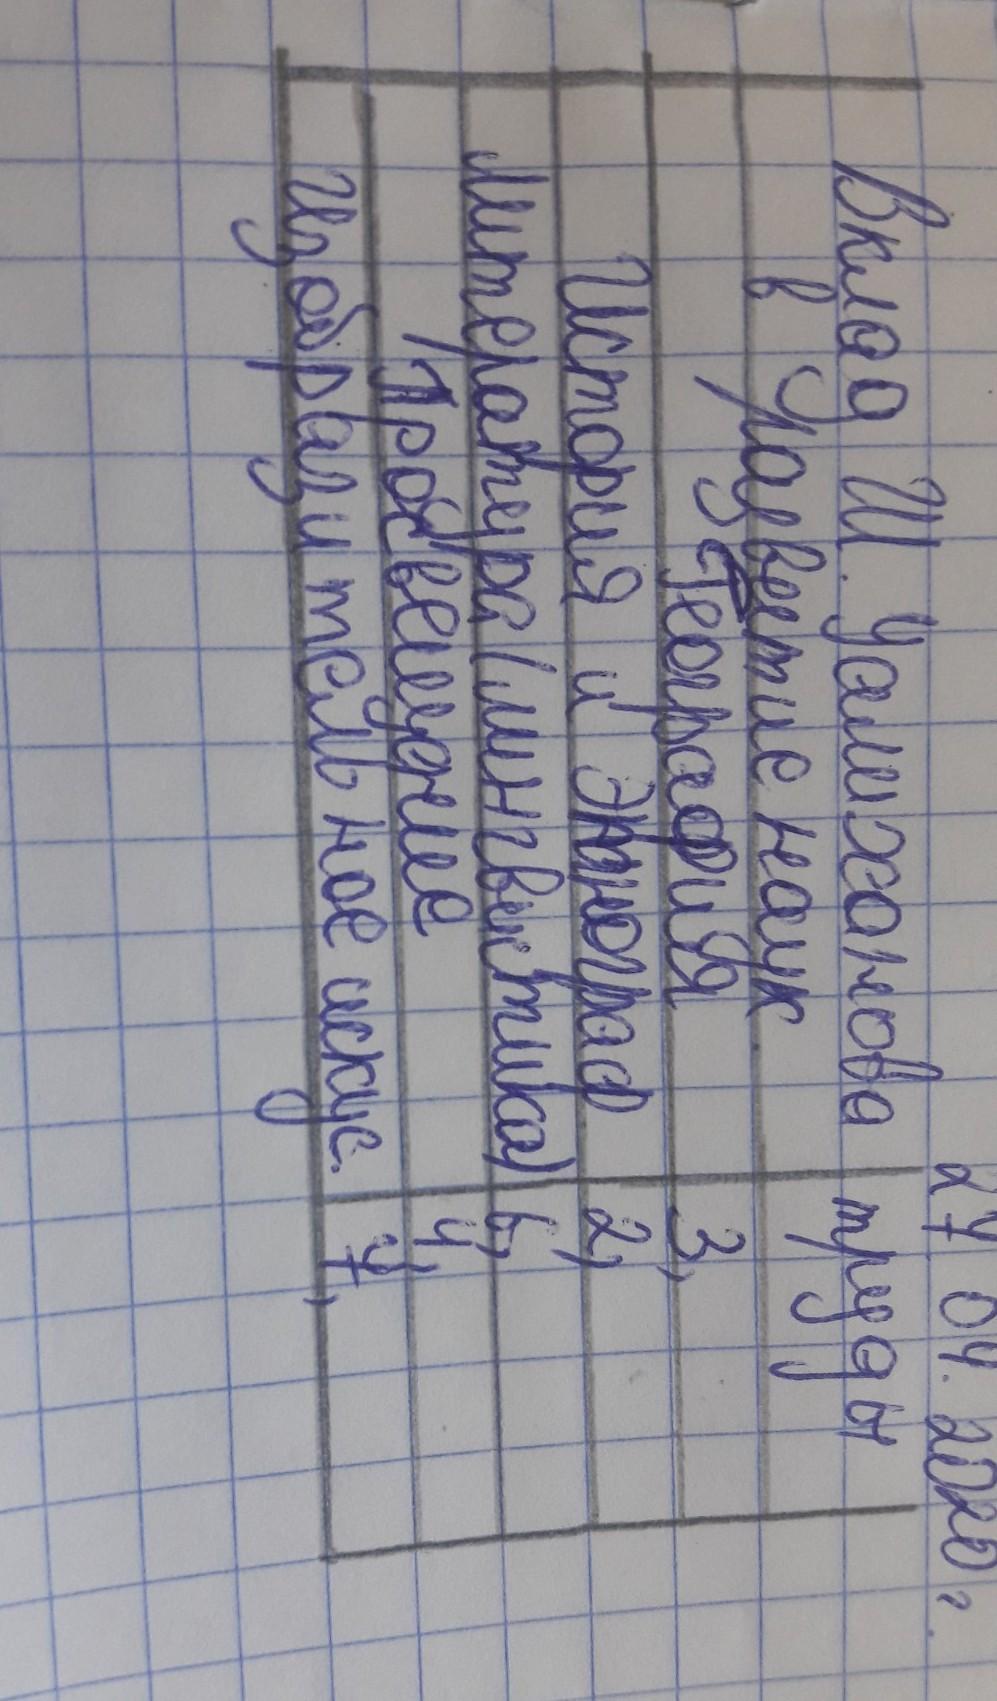 27 04. 2020 г.
Вклад Ш. Уалиханова труды
в Разветие наук
География 3,
История и Этнограф 2,
Литература (лингвистика) 6,
Просвещение 4,
Изобразительное искус. 7,